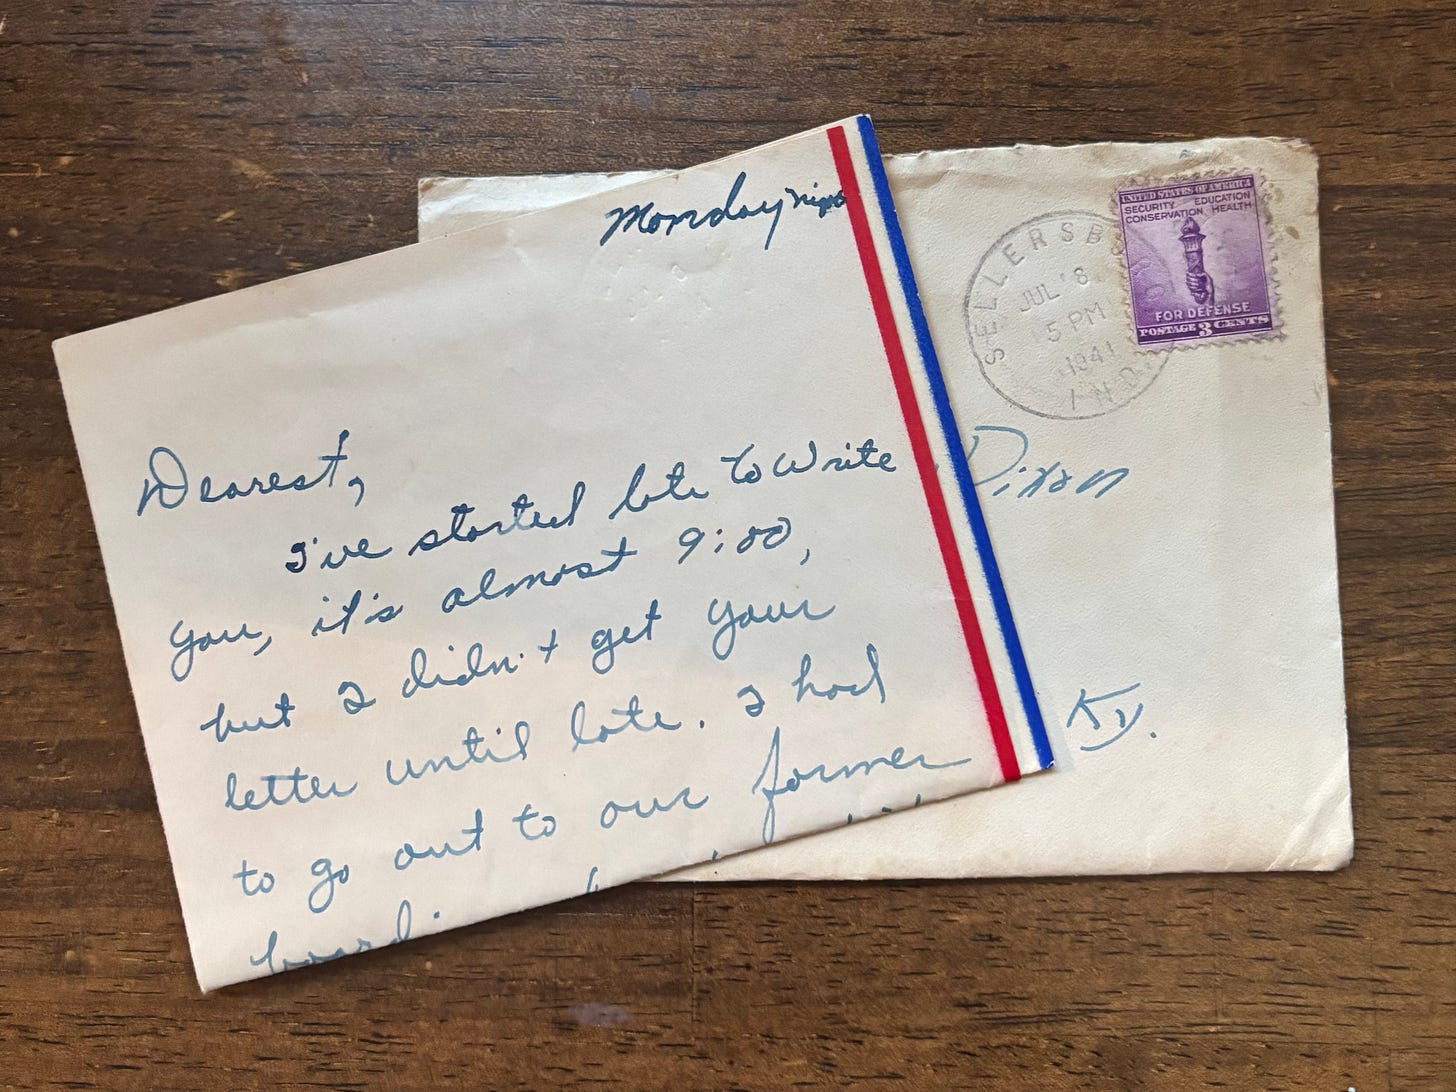 Monday
Dearest,
I've started late to write
you, it's almost 9:00,
but I didn't get your
letter until late. I had
to go out to our former
SELLERSB
JUL 8
5 PM
1941
IND.
UNITED STATES OF AMERICA
SECURITY EDUCATION
CONSERVATION HEALTH
FOR DEFENSE
POSTAGE 3 CENTS
Dixon
Ky.